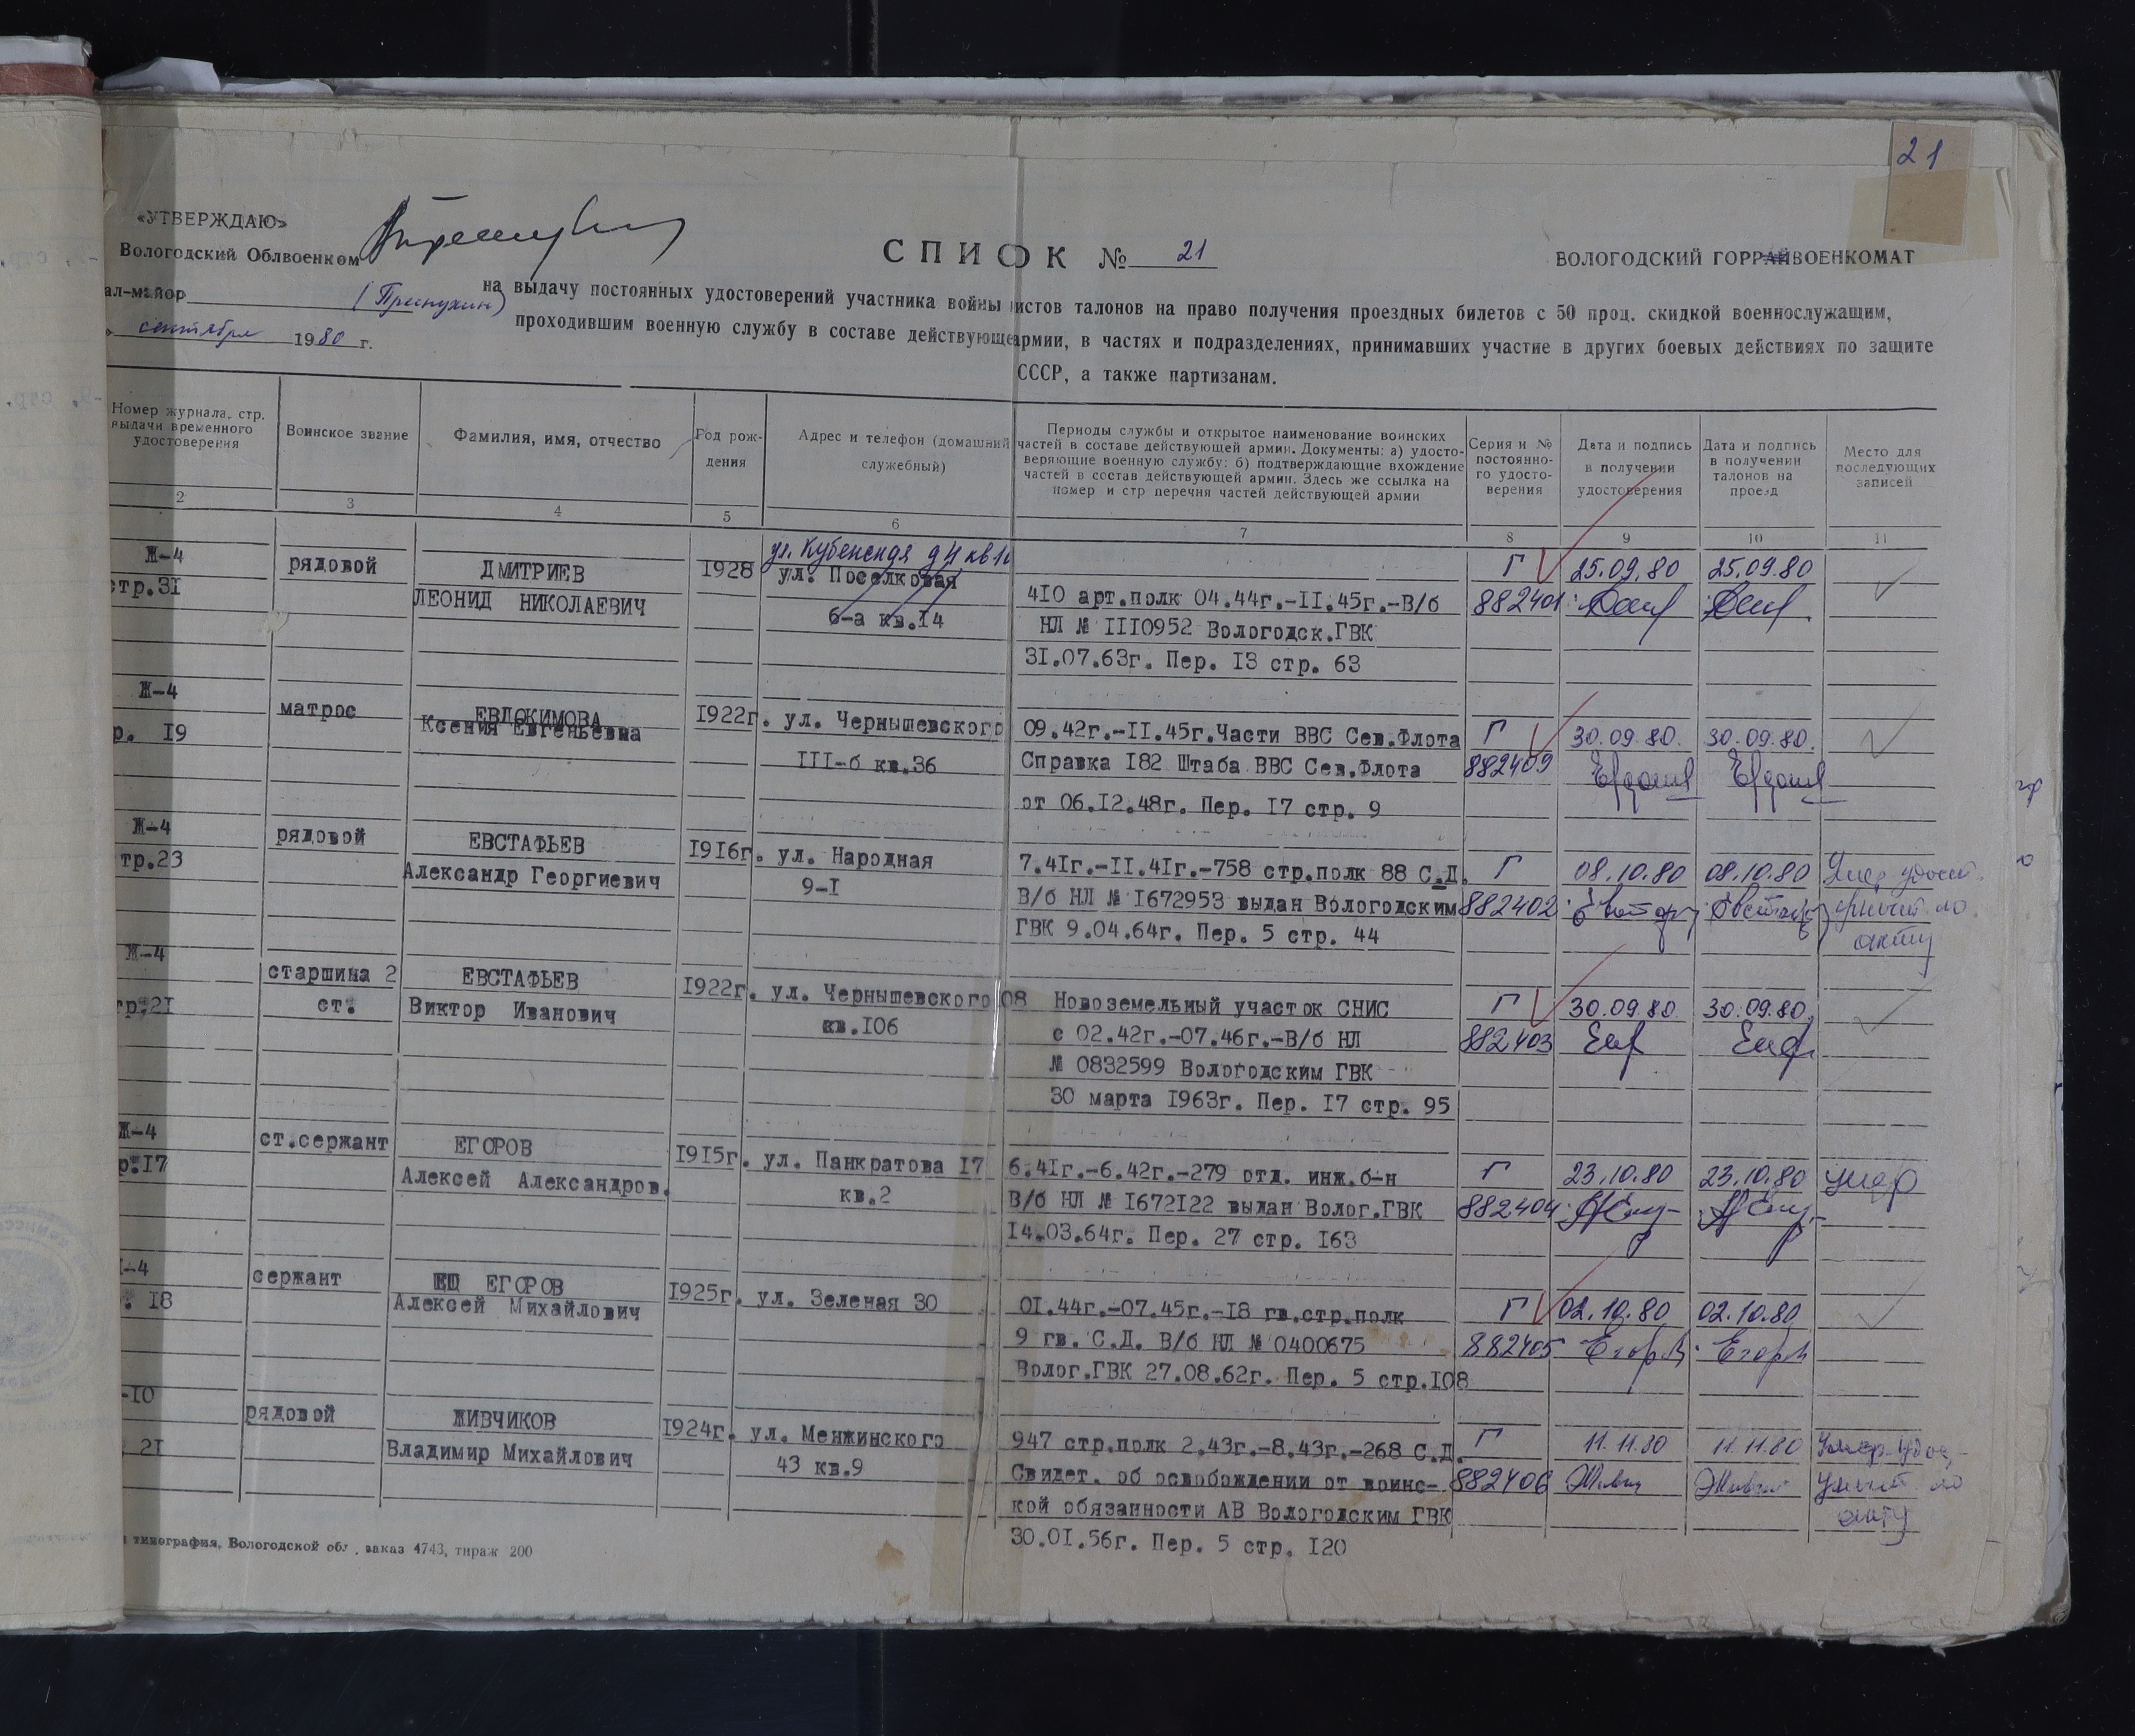 21
«УТВЕРЖДАЮ»
Вологодский Облвоенком
СПИСОК № 21
ВОЛОГОДСКИЙ ГОРРАЙВОЕНКОМАТ
ал-майор
сентября 1980 г.
на выдачу постоянных удостоверений участника войны истов талонов на право получения проездных билетов с 50 проц. скидкой военнослужащим,
проходившим военную службу в составе действующе армии, в частях и подразделениях, принимавших участие в других боевых действиях по защите
СССР, а также партизанам.
Номер журнала, стр. выдачи временного удостоверения
Воинское звание
Фамилия, имя, отчество
Год рож-
дения
Адрес и телефон (домашний
служебный)
Периоды службы и открытое наименование воинских
частей в составе действующей армии. Документы: а) удосто-
веряющие военную службу; б) подтверждающие вхождение
частей в состав действующей армии. Здесь же ссылка на
номер и стр перечня частей действующей армии
Серия и №
постоянно-
го удосто-
верения
Дата и подпись
в получении
удостоверения
Дата и подпись
в получении
талонов на
проезд
Место для
последующих
записей
2 3 4 5 6 7 8 9 10 11
Ж-4
стр.31
рядовой
ДМИТРИЕВ
ЛЕОНИД НИКОЛАЕВИЧ
1928
ул. Кубенская д 4 кв
ул. Поселковая
6-а кв.14
410 арт.полк 04.44г.-II.45г.-В/б
НЛ № III0952 Вологодск.ГВК
31.07.63г. Пер. 13 стр. 63
Г
882401
25.09.80
25.09.80
Ж-4
р. 19
матрос
ЕВДОКИМОВА
Ксения Евгеньевна
1922г.
ул. Чернышевского
III-б кв.36
09.42г.-II.45г.Части ВВС Сев.Флота
Справка 182 Штаба ВВС Сев.Флота
от 06.12.48г. Пер. 17 стр. 9
Г
882409
30.09.80.
30.09.80.
Ж-4
тр.23
рядовой
ЕВСТАФЬЕВ
Александр Георгиевич
1916г.
ул. Народная
9-I
7.41г.-II.41г.-758 стр.полк 88 С.Д.
В/б НЛ № 1672953 выдан Вологодским
ГВК 9.04.64г. Пер. 5 стр. 44
Г
882402
08.10.80
08.10.80
акту
Ж-4
тр.21
старшина 2
ст.
ЕВСТАФЬЕВ
Виктор Иванович
1922г.
ул. Чернышевского 08
кв.106
Новоземельный участок СНИС
с 02.42г.-07.46г.-В/б НЛ
№ 0832599 Вологодским ГВК
30 марта 1963г. Пер. 17 стр. 95
Г
882403
30.09.80.
30.09.80.
Ж-4
р.17
ст.сержант
ЕГОРОВ
Алексей Александров.
1915г.
ул. Панкратова 17
кв.2
6.41г.-6.42г.-279 отд. инж.б-н
В/б НЛ № 1672122 выдан Волог.ГВК
14.03.64г. Пер. 27 стр. 163
Г
882404
23.10.80
23.10.80
умер
-4
. 18
сержант
ЕГОРОВ
Алексей Михайлович
1925г.
ул. Зеленая 30
01.44г.-07.45г.-18 гв.стр.полк
9 гв. С.Д. В/б НЛ № 0400675
Волог.ГВК 27.08.62г. Пер. 5 стр.108
Г
882405
02.10.80
02.10.80
-10
21
рядовой
ЖИВЧИКОВ
Владимир Михайлович
1924г.
ул. Менжинского
43 кв.9
947 стр.полк 2.43г.-8.43г.-268 С.Д.
Свидет. об освобождении от воинс-
кой обязанности АВ Вологодским ГВК
30.01.56г. Пер. 5 стр. 120
Г
882406
11.11.80
11.11.80
акту
типография, Вологодской обл., заказ 4743, тираж 200